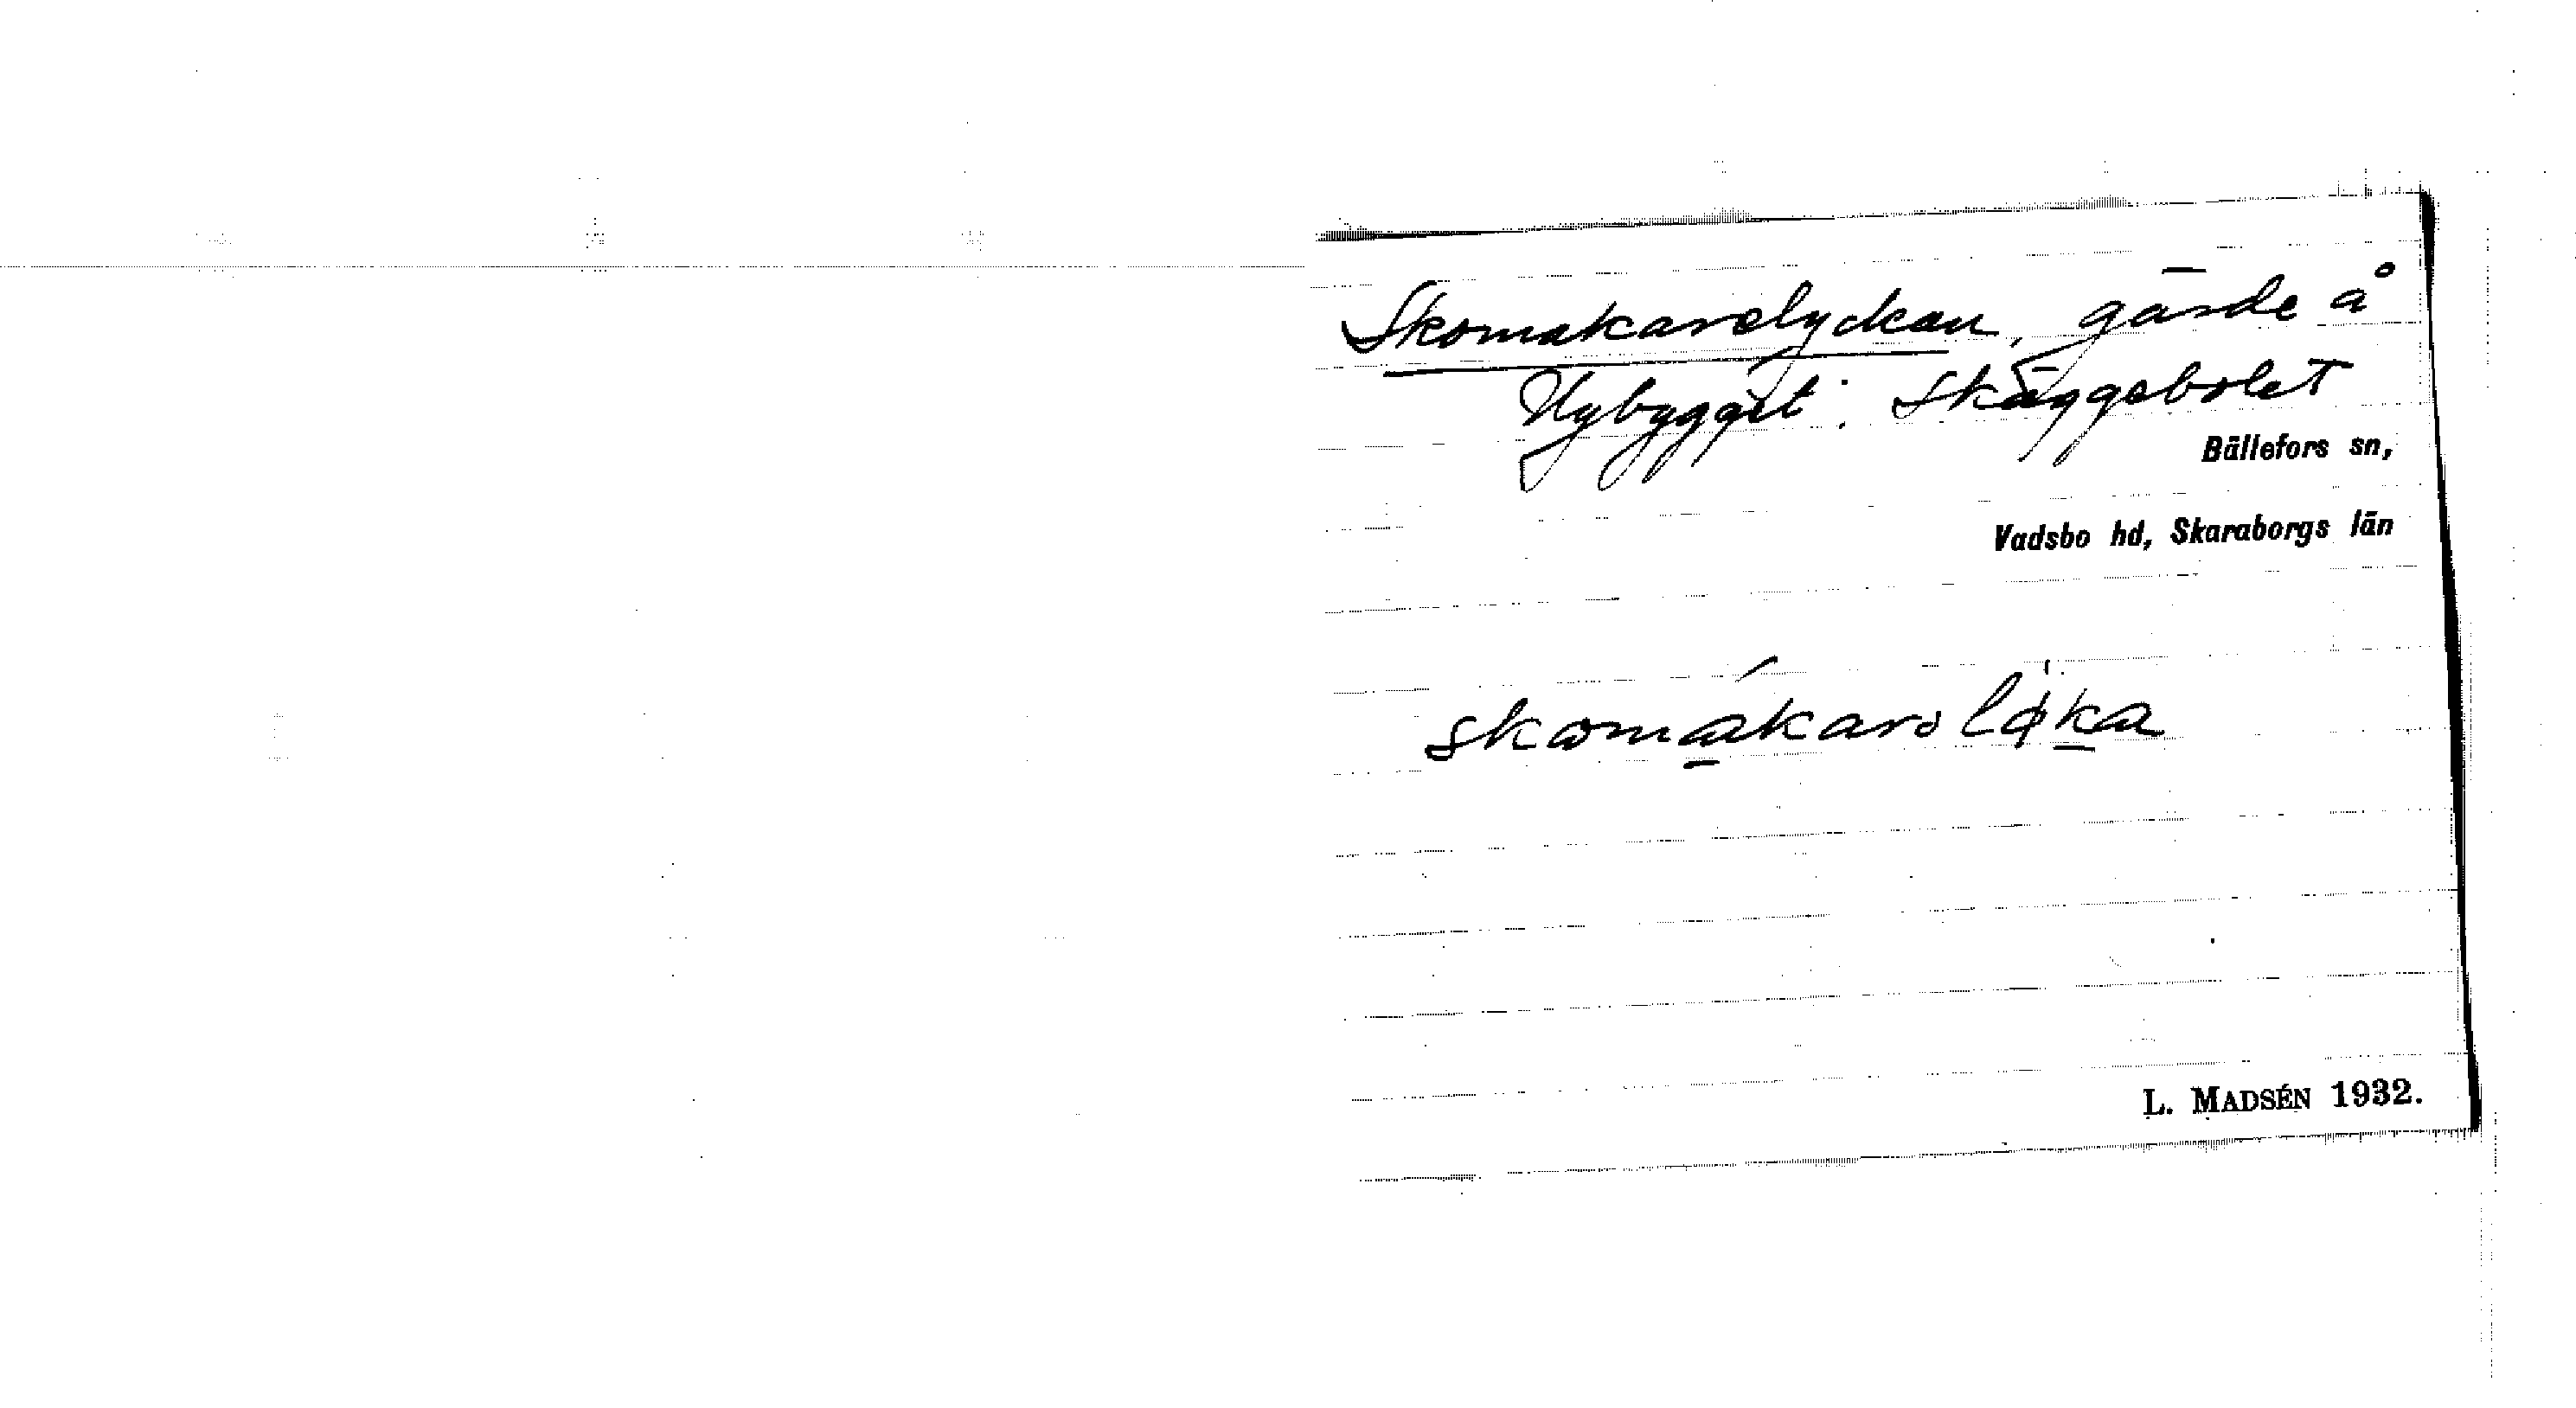 Skomakarelyckan, gärde å
Nybygget. Skäggebolet
Bällefors sn,
Vadsbo hd, Skaraborgs län
skomákarolø̀ka
L. MADSÉN 1932.